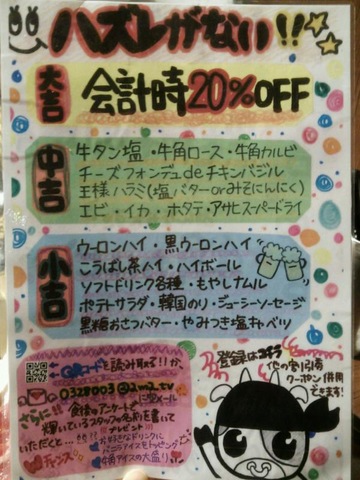 ハズレがない!!
大吉
会計時20%OFF
中吉
牛タン塩・牛角ロース・牛角カルビ
チーズフォンデュdeチキンバジル
王様ハラミ(塩バターorみそにんにく)
エビ・イカ・ホタテ・アサヒスーパードライ
小吉
ウーロンハイ・黒ウーロンハイ
こうばし茶ハイ・ハイボール
ソフトドリンク各種・もやしナムル
ポテトサラダ・韓国のり・ジューシーソーセージ
黒糖おさつバター・やみつき塩キャベツ
QRコードを読み取って!!か、
に空メール
さらに
食後のアンケートで
輝いているスタッフの名前を書いて
いただくと…
プレゼント!!!
お好きなドリンクに
バニラアイスをトッピング
牛角アイスの大盛り
チャンス
登録は
他の割引券
クーポン併用
できます!